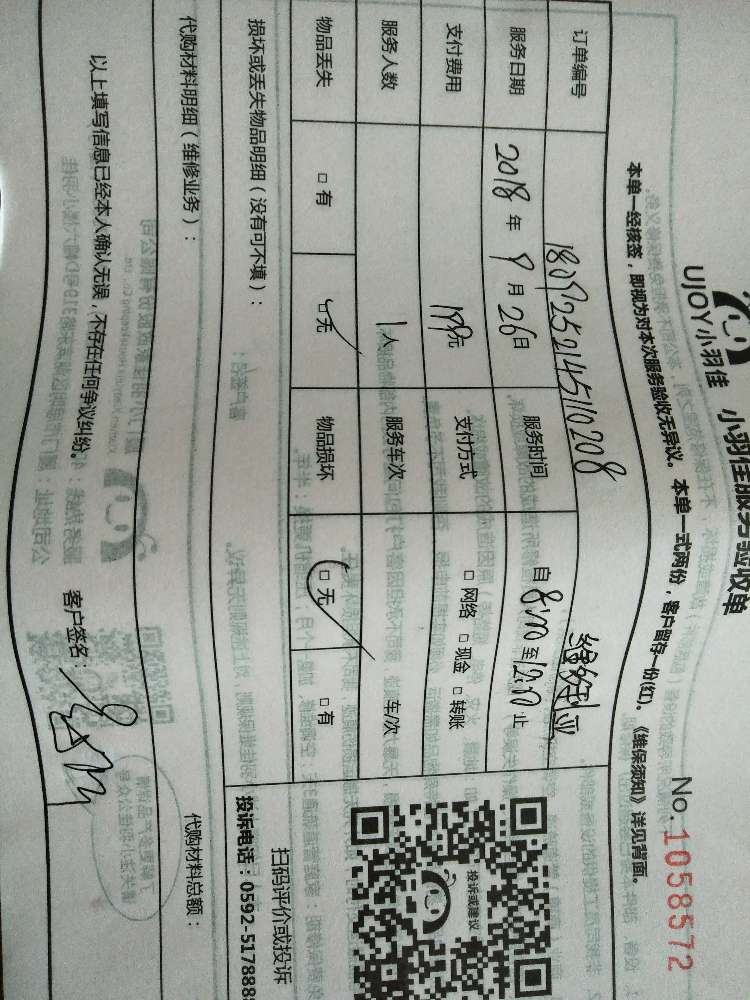 UJOY小羽佳 小羽佳服务验收单
No.1058572
本单一经核签，即视为对本次服务验收无异议。本单一式两份，客户留存一份(红)。《维保须知》详见背面。
订单编号 1809252145110208
服务日期 2018年9月26日 服务时间 自8:00至12:00止
支付费用 199元 支付方式 □网络 □现金 □转账
服务人数 1人 服务车次 车/次
物品丢失 □有 □无 物品损坏 □无 □有
损坏或丢失物品明细（没有可不填）：
代购材料明细（维修业务）： 代购材料总额：
投诉或建议
扫码评价或投诉
投诉电话：0592-5178888
以上填写信息已经本人确认无误，不存在任何争议纠纷。 客户签名：